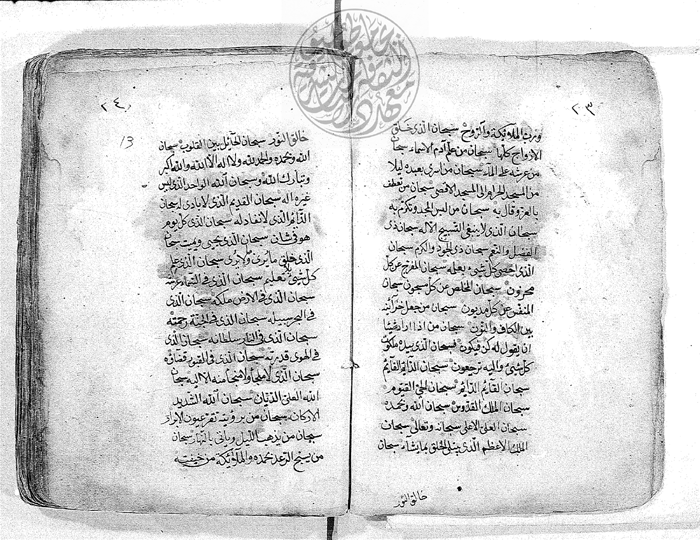 ٢٣
ورب الملائكة والروح سبحان الذي خلق
الازواج كلها سبحان من علم آدم الاسماء سبحان
من عرشه على الماء سبحان من اسرى بعبده ليلا
من المسجد الحرام الى المسجد الاقصى سبحان من تعطف
بالعز وقال به سبحان من لبس المجد وتكرم به
سبحان الذي لا ينبغي التسبيح الا له سبحان ذي
الفضل والنعم سبحان ذي الجود والكرم سبحان
الذي احصى كل شيء بعلمه سبحان المفرج عن كل
محزون سبحان المخلص عن كل مسجون سبحان
المنفس عن كل مديون سبحان من جعل خزائنه
بين الكاف والنون سبحان من اذا اراد شيئا
ان يقول له كن فيكون فسبحان الذي بيده ملكوت
كل شيء واليه ترجعون سبحان الدائم القائم
سبحان القائم الدائم سبحان الحي القيوم
سبحان الملك القدوس سبحان الله وبحمده
سبحان العلي الاعلى سبحانه وتعالى سبحان
الملك الاعظم الذي يبتلي الخلق بما يشاء سبحان
خالق النور
٢٤
13
خالق النور سبحان الحائل بين القلوب سبحان
الله وبحمده والحمد لله ولا اله الا الله والله اكبر
وتبارك الله وسبحان الله الواحد الذي ليس
غيره اله سبحان القديم الذي لا بادي له سبحان
الدائم الذي لا نفاد له سبحان الذي كل يوم
هو في شان سبحان الذي يحيي ويميت سبحان
الذي خلق ما يرى ولا يرى سبحان الذي علم
كل شيء بغير تعليم سبحان الذي في السماء عرشه
سبحان الذي في الارض ملكه سبحان الذي
في البحر سبيله سبحان الذي في الجنة رحمته
سبحان الذي في النار سلطانه سبحان الذي
في الهوى قدرته سبحان الذي في القبور قضاؤه
سبحان الذي لا ملجا ولا منجا منه الا اليه سبحان
الله العلي الديان سبحان الله الشديد
الاركان سبحان من برؤيته تقر عيون الابرار
سبحان من يذهب الليل وياتي بالنهار سبحان
من يسبح الرعد بحمده والملائكة من خيفته